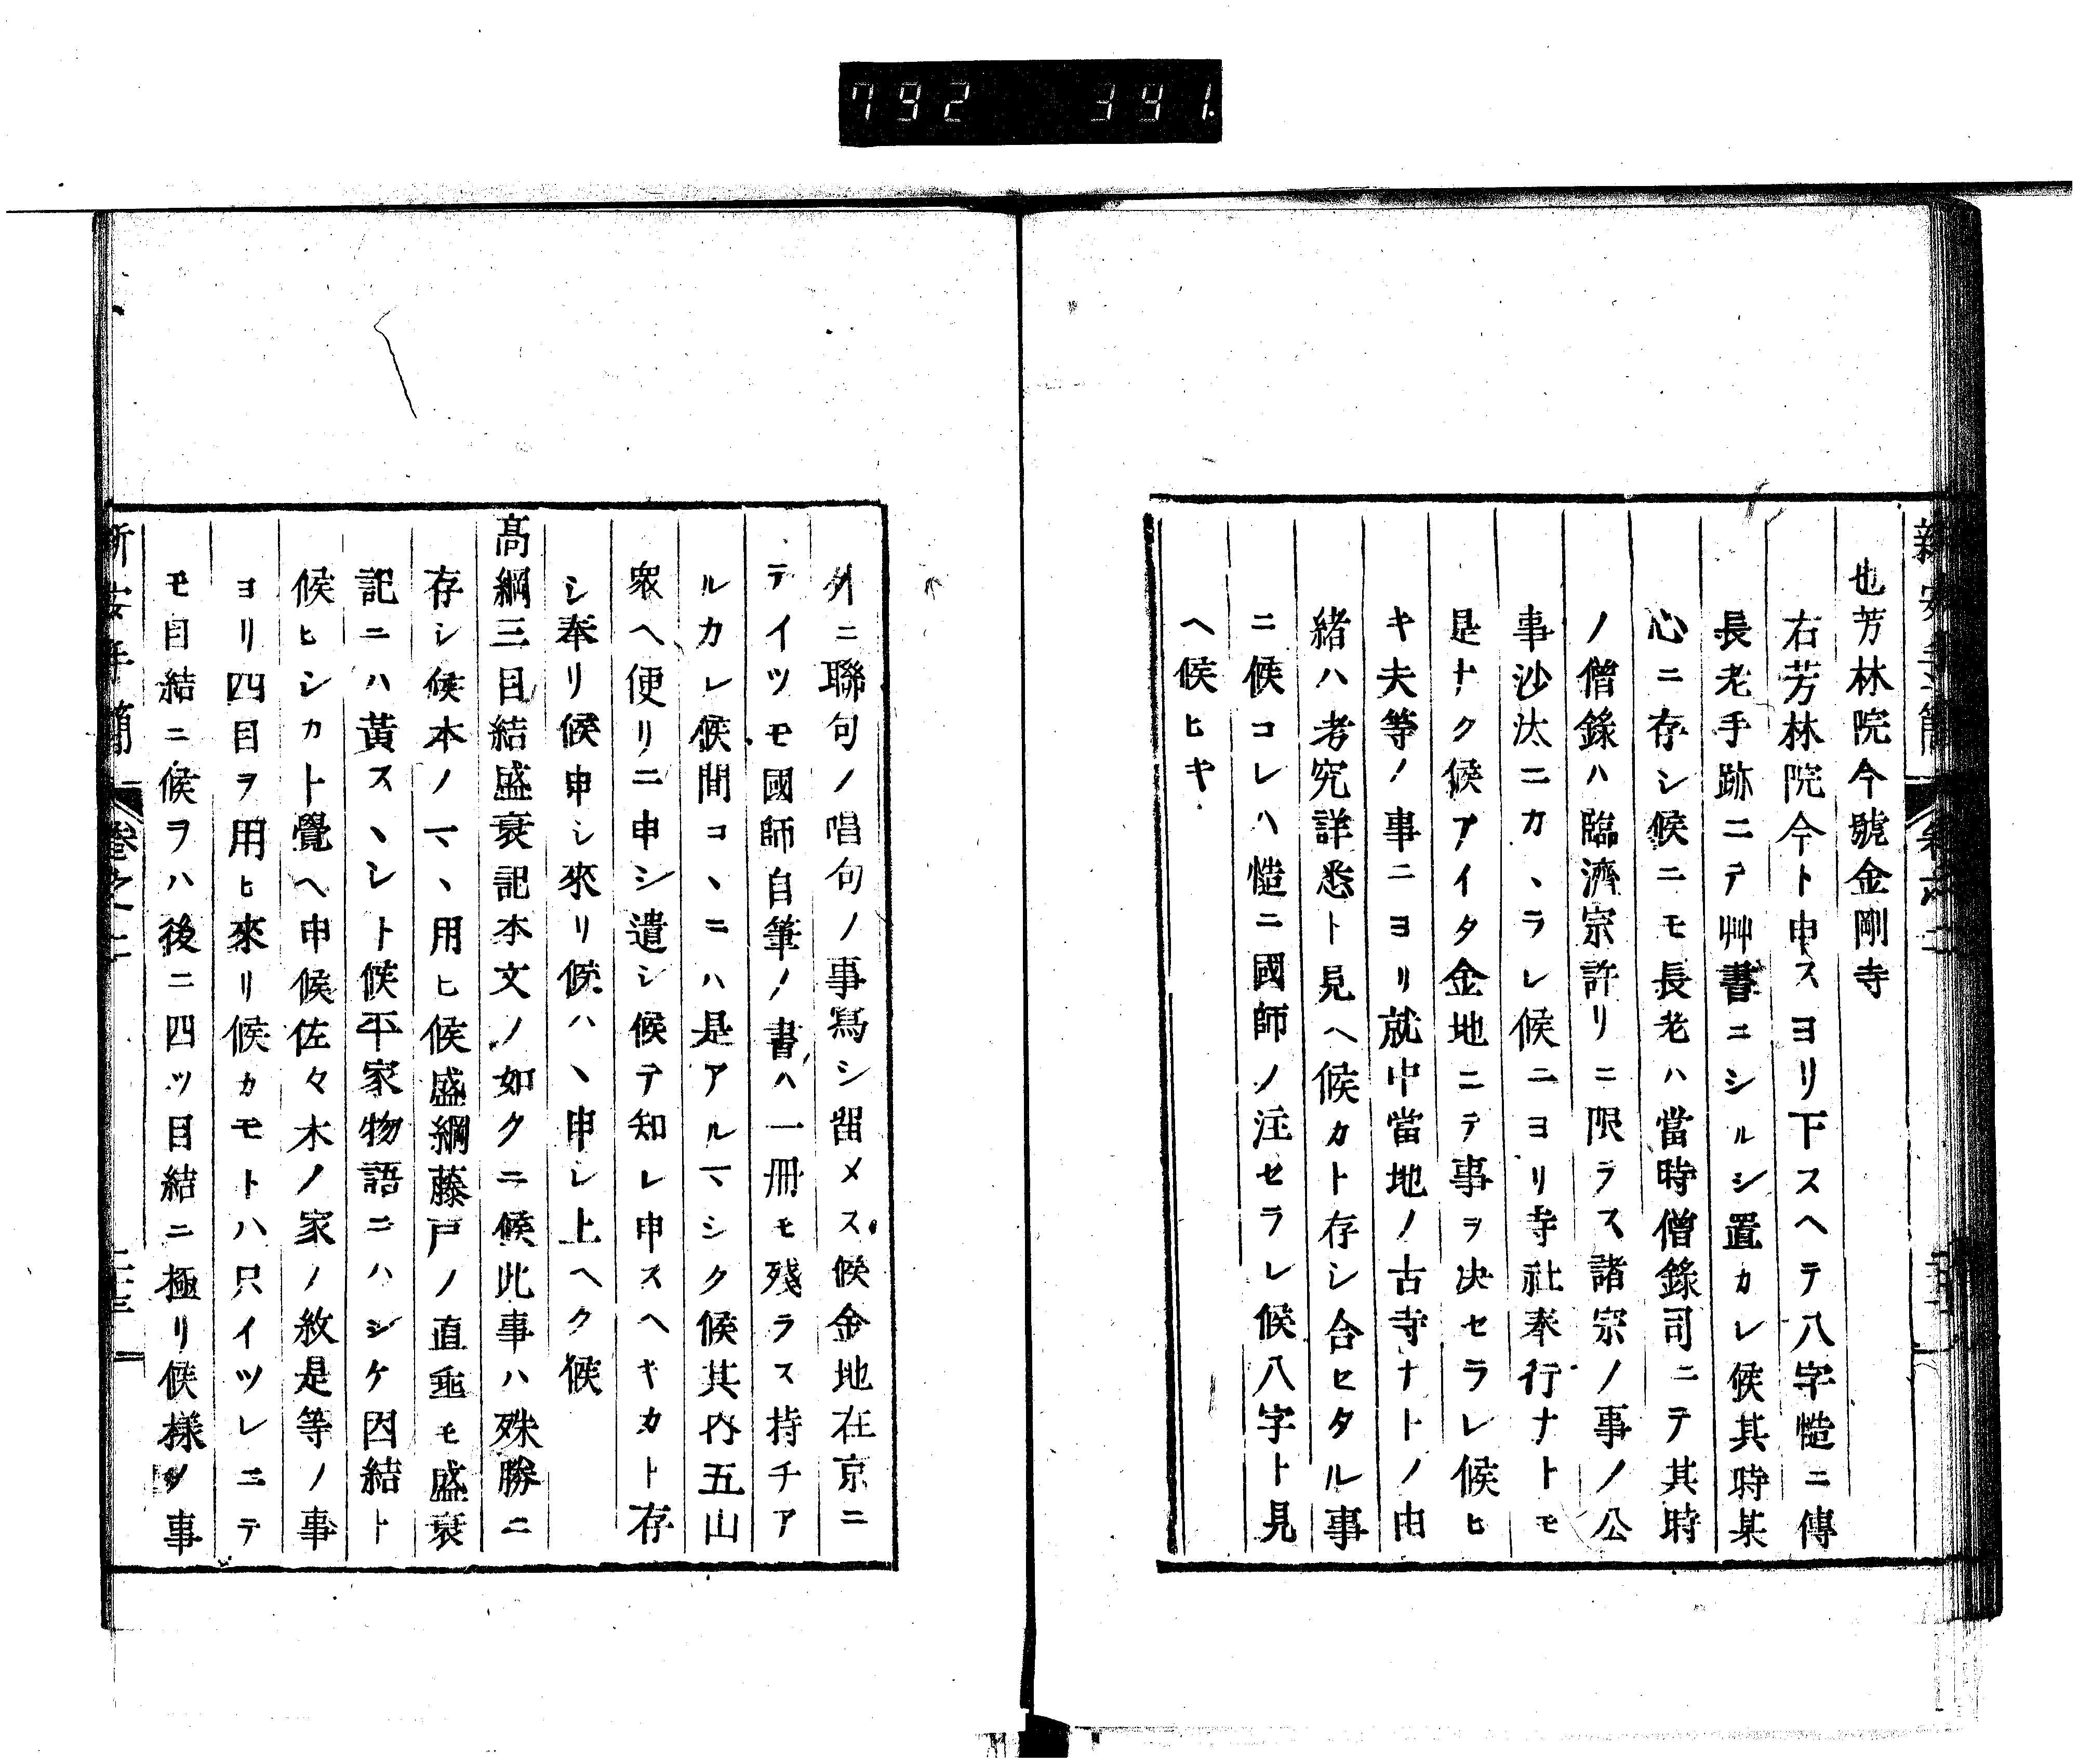 792 391
新安手簡 卷之二
也芳林院今號金剛寺
右芳林院今ト申スヨリ下スヘテ八字慥ニ傳
長老手跡ニテ艸書ニシルシ置カレ候其時某
心ニ存シ候ニモ長老ハ當時僧錄司ニテ其時
ノ僧錄ハ臨濟宗許リニ限ラス諸宗ノ事ノ公
事沙汰ニカヽラレ候ニヨリ寺社奉行ナトモ
是ナク候アイタ金地ニテ事ヲ決セラレ候ヒ
キ夫等ノ事ニヨリ就中當地ノ古寺ナトノ由
緒ハ考究詳悉ト見ヘ候カト存シ合セタル事
ニ候コレハ慥ニ國師ノ注セラレ候八字ト見
ヘ候ヒキ
外ニ聯句ノ唱句ノ事寫シ留メス候金地在京ニ
テイツモ國師自筆ノ書ハ一冊モ殘ラス持チア
ルカレ候間コヽニハ是アルマシク候其内五山
衆ヘ便リニ申シ遣シ候テ知レ申スヘキカト存
シ奉リ候申シ來リ候ハヽ申レ上ヘク候
髙綱三目結盛衰記本文ノ如クニ候此事ハ殊勝ニ
存シ候本ノマヽ用ヒ候盛綱藤戸ノ直垂モ盛衰
記ニハ黃スヽレト候平家物語ニハシケ因結ト
候ヒシカト覺ヘ申候佐々木ノ家ノ紋是等ノ事
ヨリ四目ヲ用ヒ來リ候カモトハ只イツレニテ
モ目結ニ候ヲハ後ニ四ツ目結ニ極リ候樣ノ事
新安手簡 卷之二